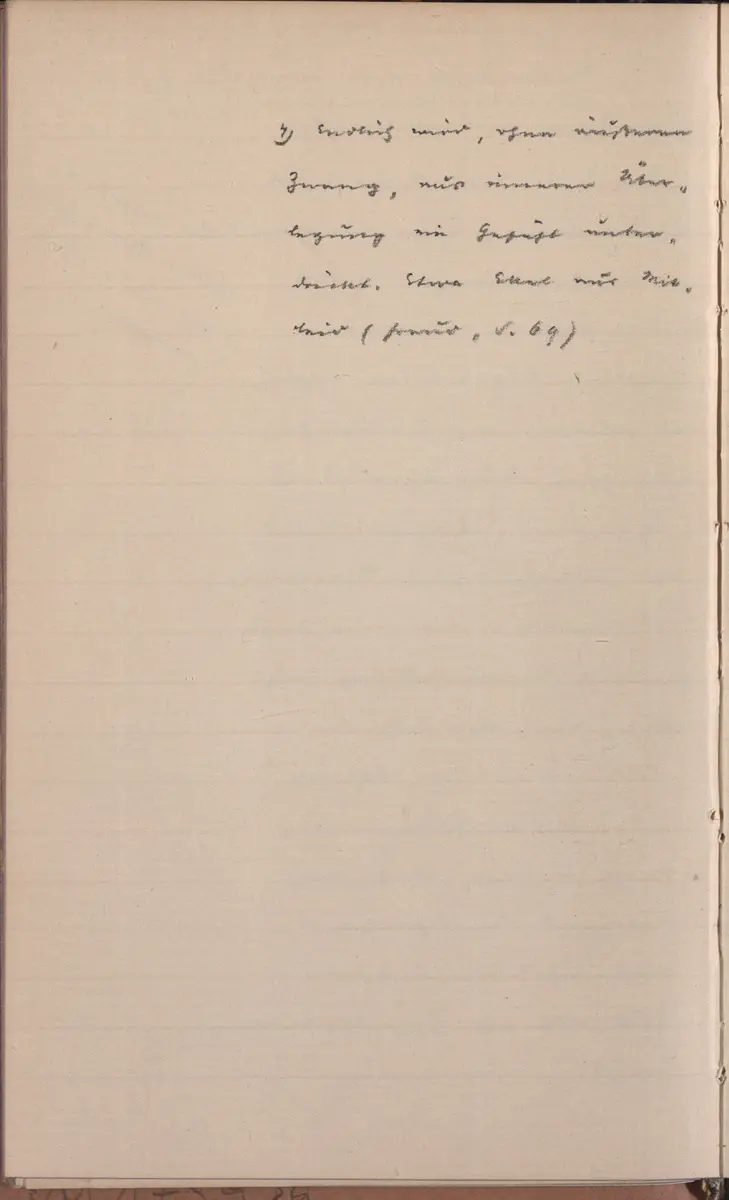 4) Endlich wird, ohne äußeren
Zwang, aus innerer Über-
legung ein Gefühl unter-
drückt. Etwa Ekel aus Mit-
leid (Freud, S. 69)